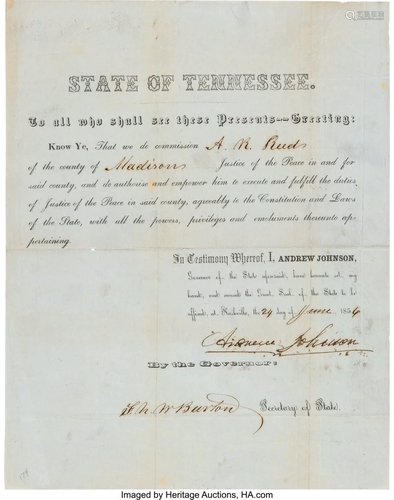 STATE OF TENNESSEE.
To all who shall see these Presents—Greeting:
Know Ye, That we do commission A. R. Reids
of the county of Madison Justice of the Peace in and for
said county, and do authorise and empower him to execute and fulfill the duties
of Justice of the Peace in said county, agreeably to the Constitution and Laws
of the State, with all the powers, privileges and emoluments thereunto ap-
pertaining.
In Testimony Whereof, I, ANDREW JOHNSON,
Governor of the State aforesaid, have hereunto set my
hand, and caused the Great Seal of the State to be
affixed, at Nashville, the 24 day of June, 1854
Andrew Johnson
By the Governor:
W. Burton Secretary of State.
Imaged by Heritage Auctions, HA.com